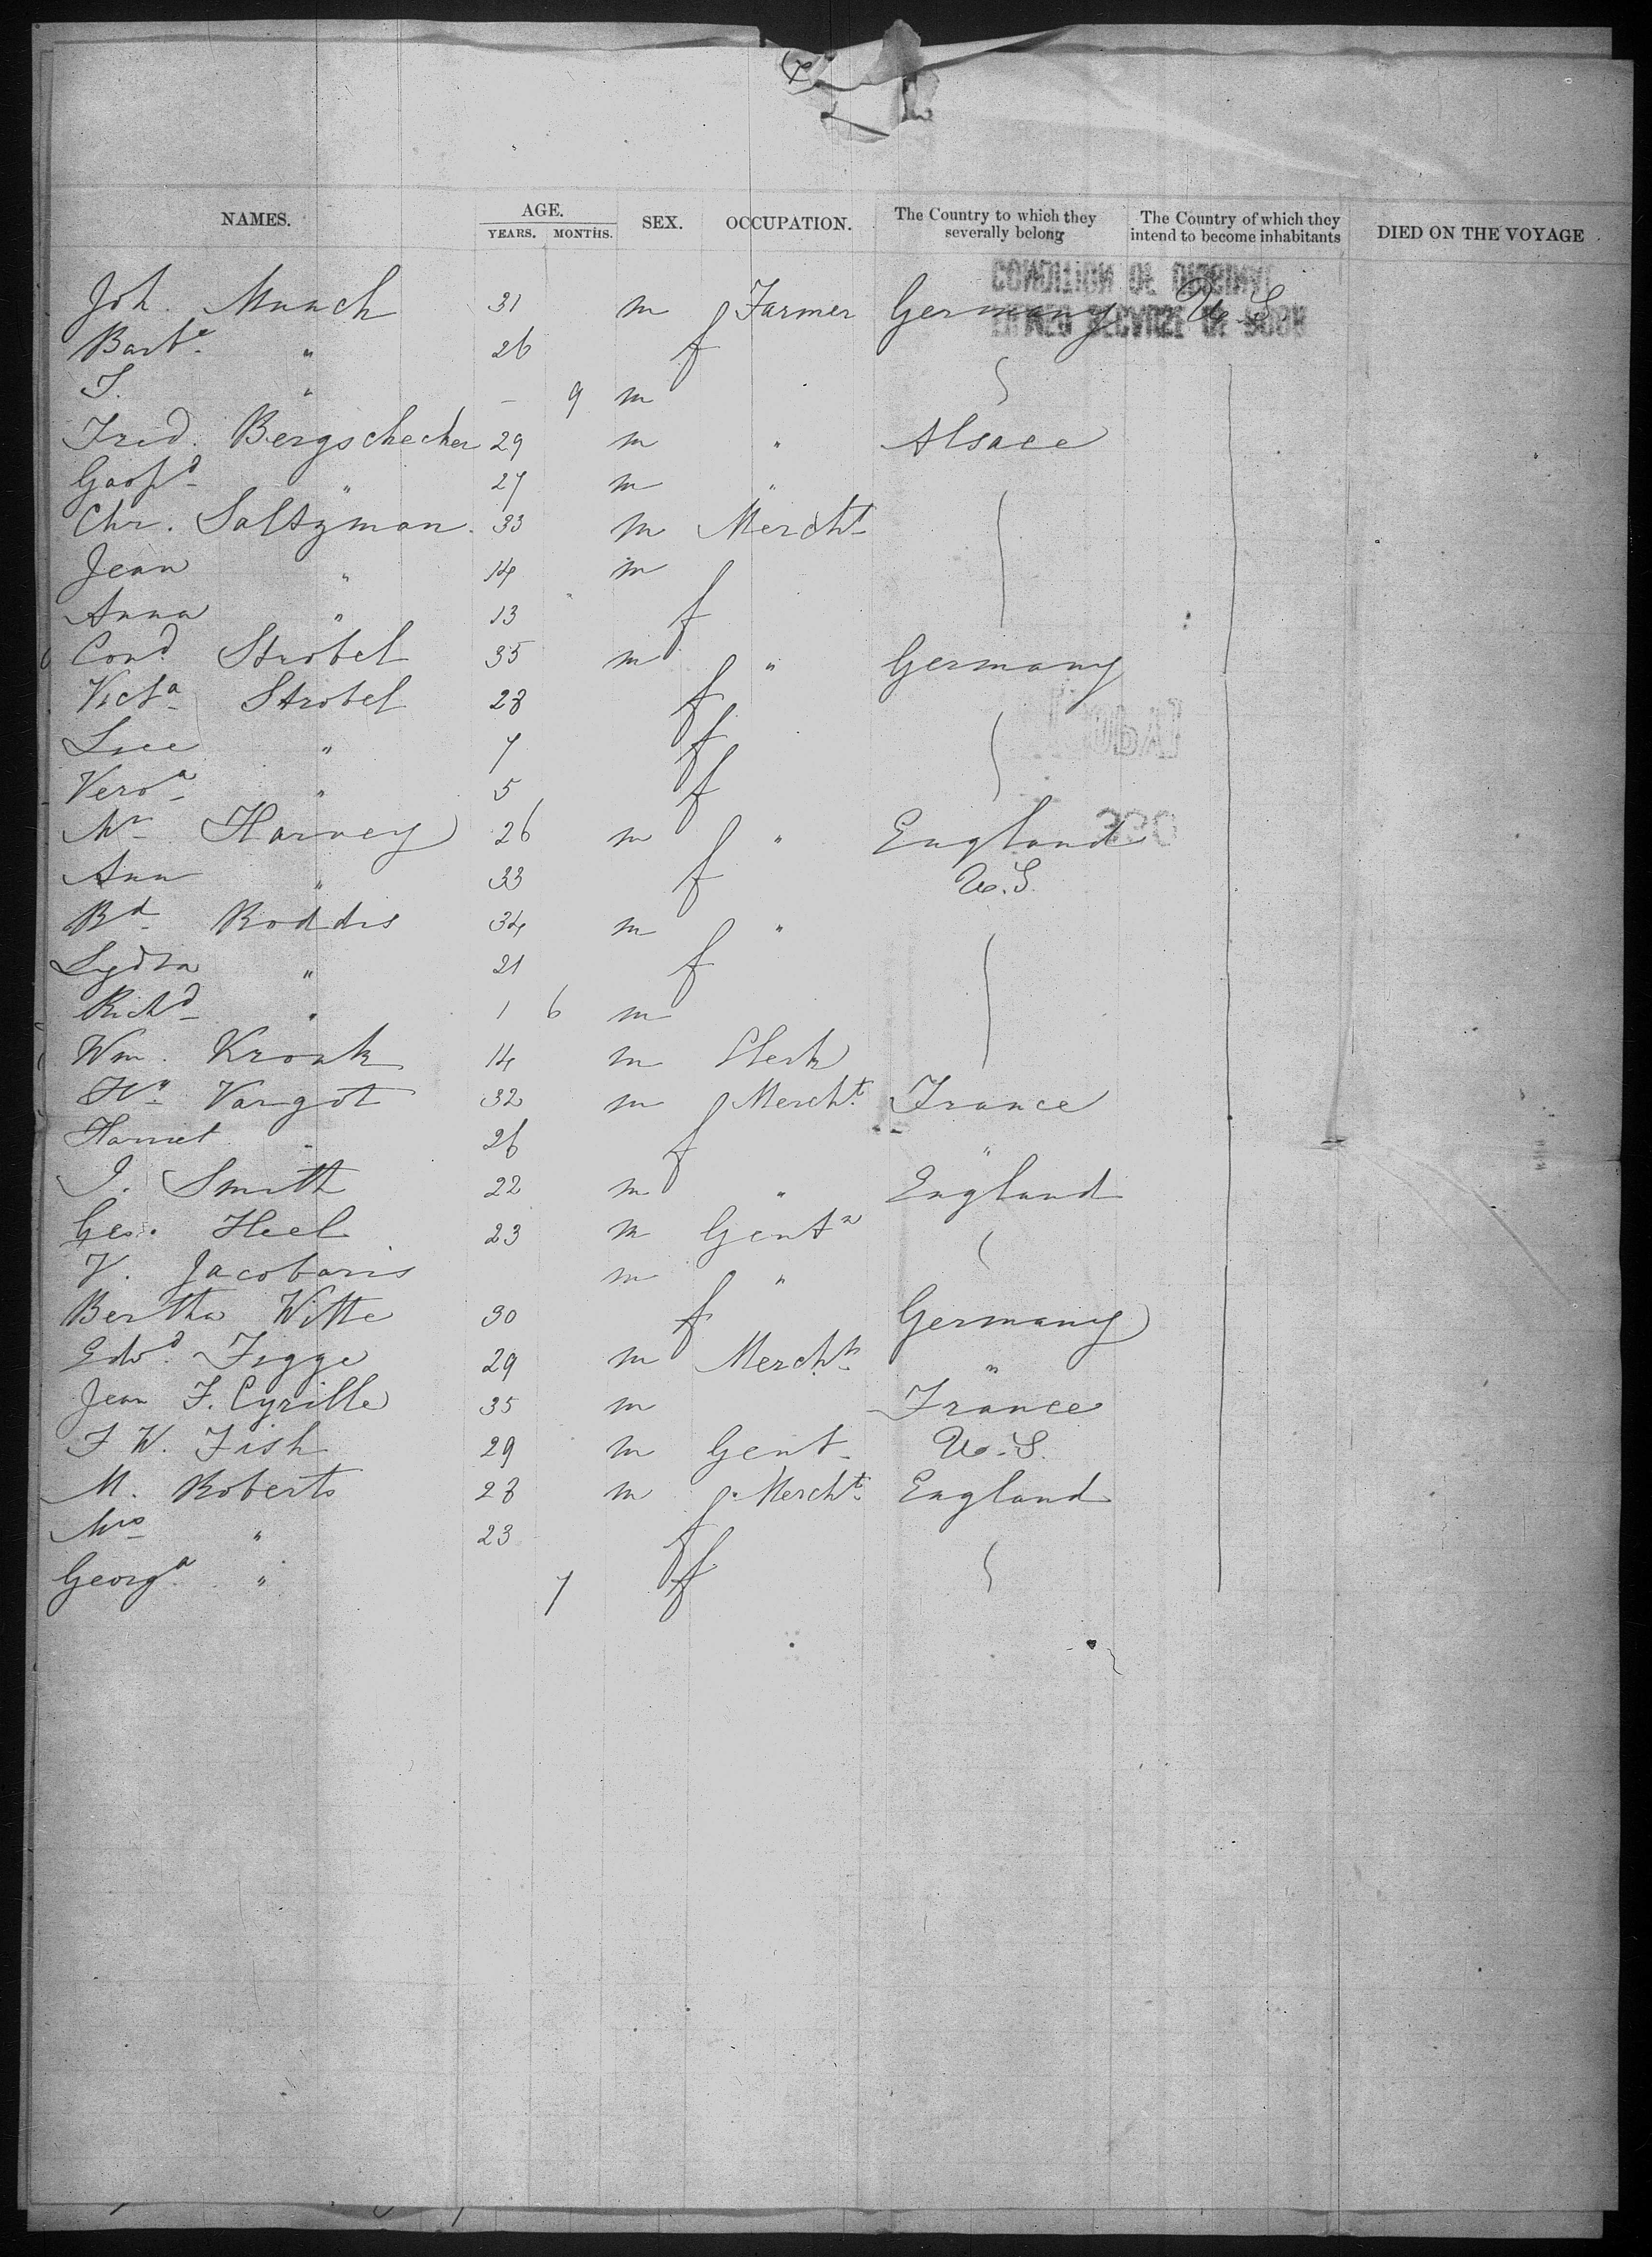 NAMES. AGE. YEARS. MONTHS. SEX. OCCUPATION. The Country to which they severally belong The Country of which they intend to become inhabitants DIED ON THE VOYAGE
Joh. Munch 31 m Farmer Germany U.S
Barba " 26 f
J. " – 9 m
Fred. Bergschecker 29 m " Alsace
" 27 m "
Chr. Saltzman. 33 m Mercht
Jean " 14 m
Anna " 13 f
Cond Strobel 35 m " Germany
Victa Strobel 28 f
" 7 f
Veroa " 5 f
Mr Harvey 26 m " England
Ann " 33 f U.S.
Rd Roddis 34 m "
Lydia " 21 f
Richd " 1 6 m
Wm. Kronk 14 m Clerk
Vargot 32 m Mercht France
Harriet " 26 f "
J. Smith 22 m " England
Geo. Heel 23 m Gentn
V. Jacobaris m "
Bertha Witte 30 f Germany
Edwd Figge 29 m Mercht "
Jean F. Cyrille 35 m France
F W. Fish 29 m Gent U.S.
M. Roberts 28 m Mercht England
Mrs " 23 f
Georga " 7 f